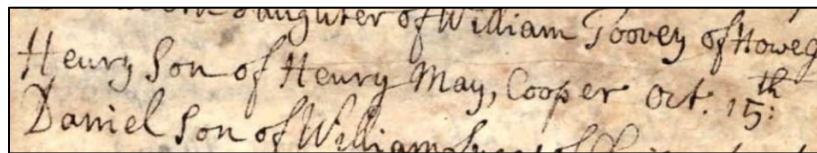 daughter of William Toovey of Howeg
Henry Son of Henry May, Cooper Oct. 15th:
Daniel Son of William